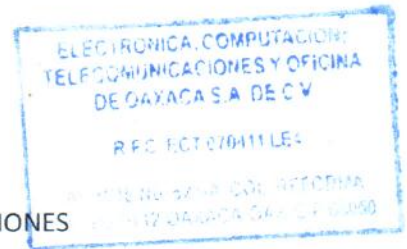 ELECTRONICA, COMPUTACION,
TELECOMUNICACIONES Y OFICINA
DE OAXACA S.A. DE C V
R F C ECT 070411
COL. REFORMA
OAXACA OAX C.P. 68050
IONES